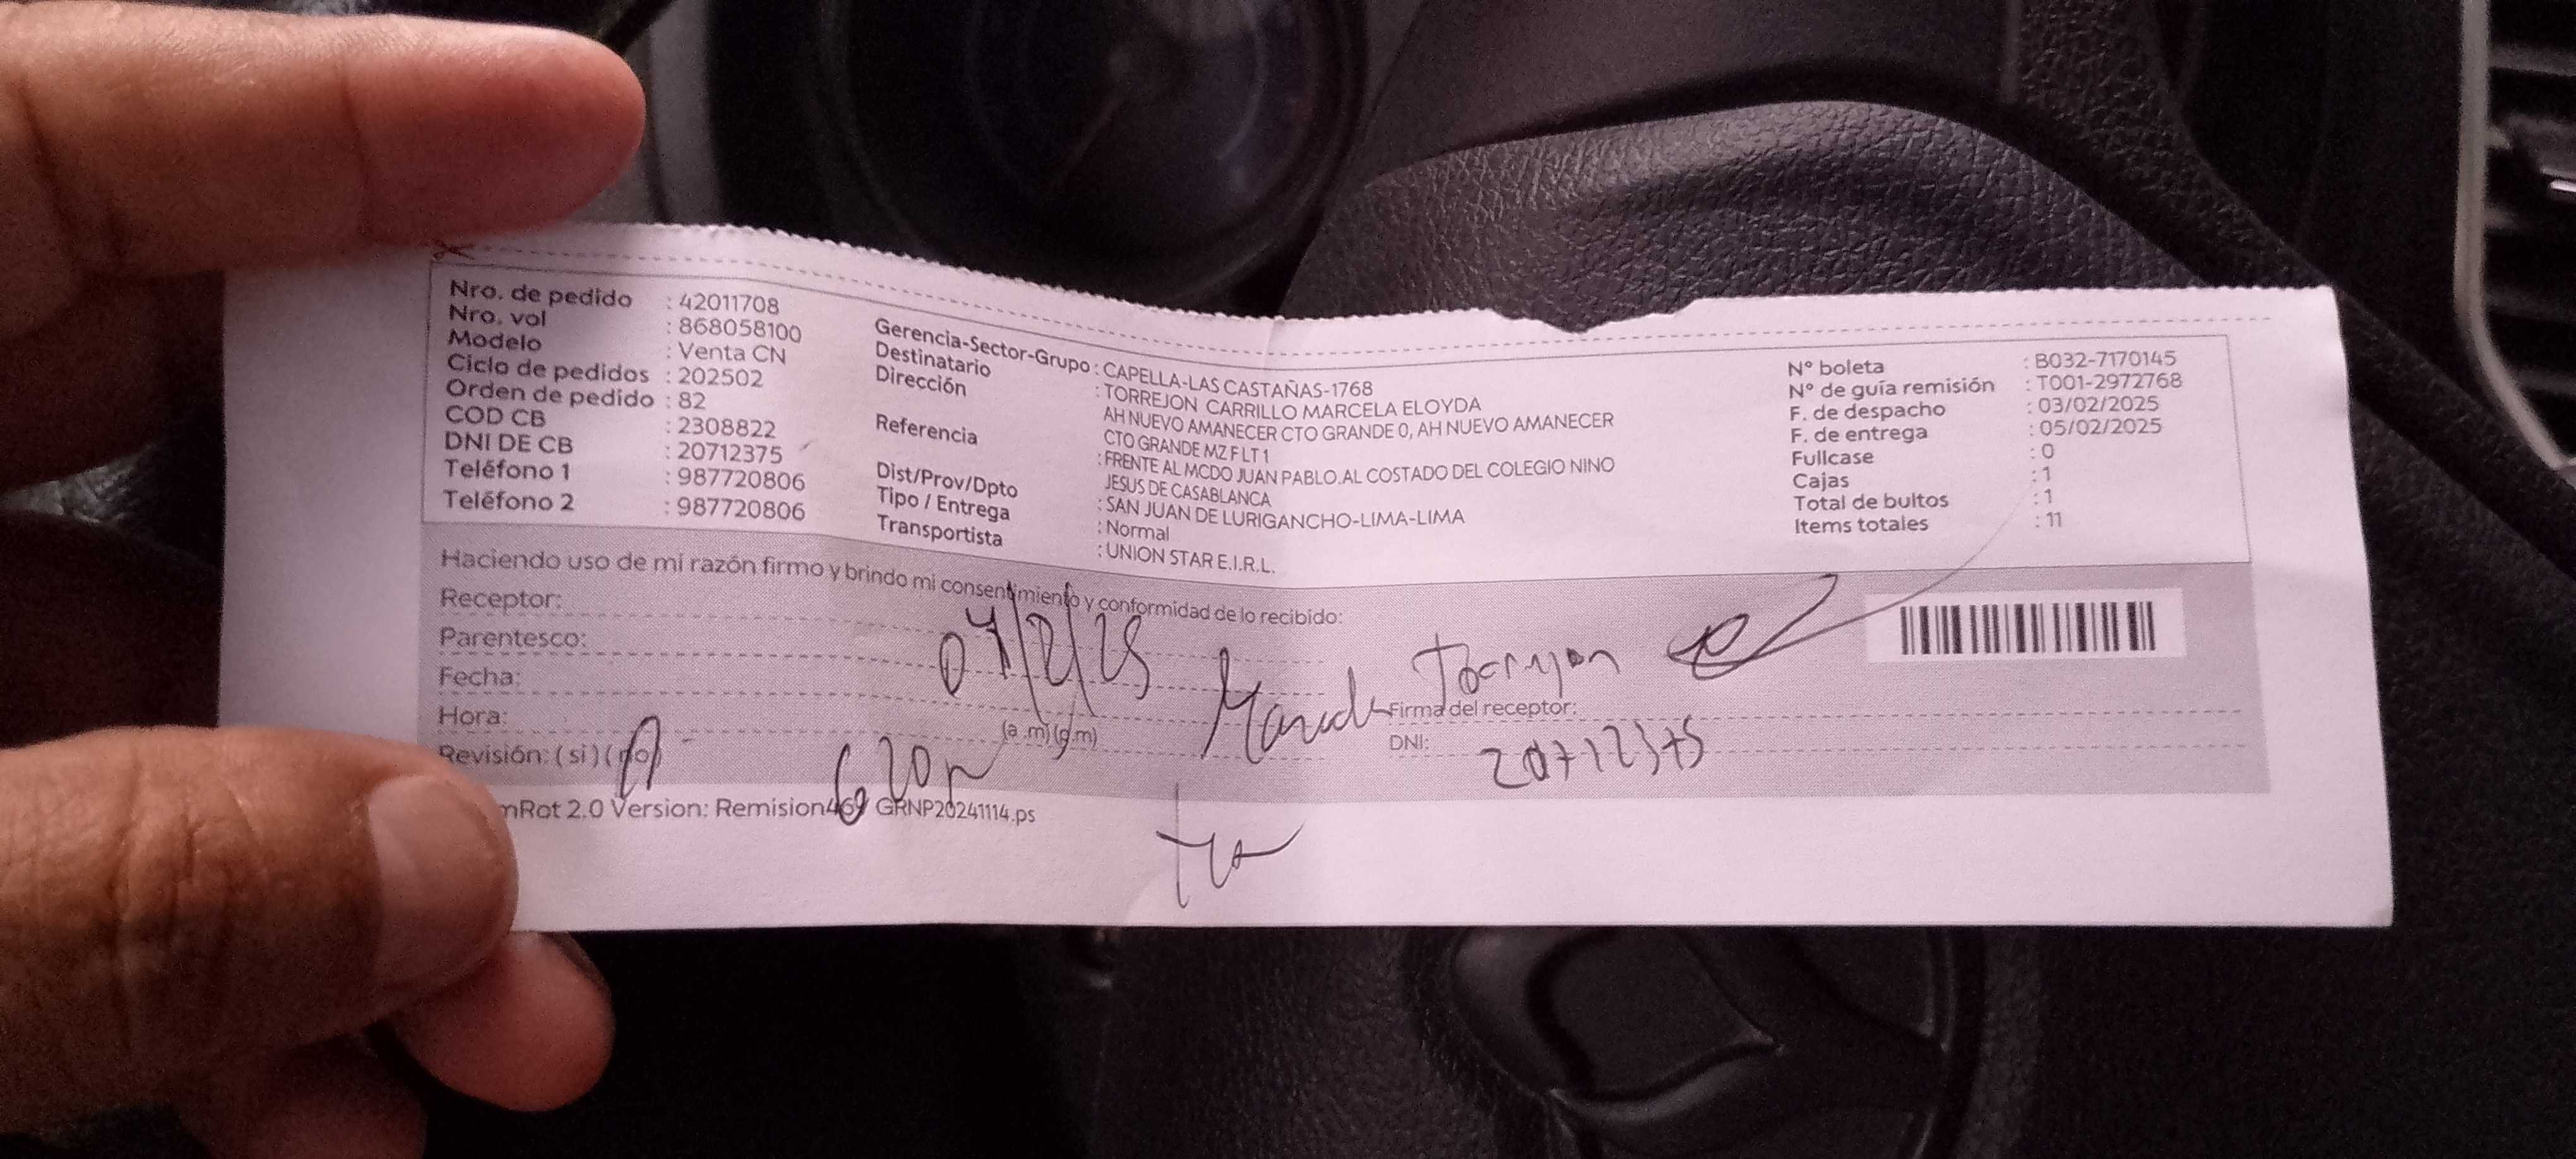 Nro. de pedido : 42011708
Nro. vol : 868058100
Modelo : Venta CN
Ciclo de pedidos : 202502
Orden de pedido : 82
COD CB : 2308822
DNI DE CB : 20712375
Teléfono 1 : 987720806
Teléfono 2 : 987720806
Gerencia-Sector-Grupo : CAPELLA-LAS CASTAÑAS-1768
Destinatario : TORREJON CARRILLO MARCELA ELOYDA
Dirección AH NUEVO AMANECER CTO GRANDE 0, AH NUEVO AMANECER
CTO GRANDE MZ F LT 1
Referencia : FRENTE AL MCDO JUAN PABLO.AL COSTADO DEL COLEGIO NINO
JESUS DE CASABLANCA
Dist/Prov/Dpto : SAN JUAN DE LURIGANCHO-LIMA-LIMA
Tipo / Entrega : Normal
Transportista : UNION STAR E.I.R.L.
N° boleta : B032-7170145
N° de guía remisión : T001-2972768
F. de despacho : 03/02/2025
F. de entrega : 05/02/2025
Fullcase : 0
Cajas : 1
Total de bultos : 1
Items totales : 11
Haciendo uso de mi razón firmo y brindo mi consentimiento y conformidad de lo recibido:
Receptor:
Parentesco:
Fecha:
Hora: (a.m) (p.m)
Revisión: ( si ) ( no )
Firma del receptor:
DNI: 20712375
mRot 2.0 Version: Remision469 GRNP20241114.ps